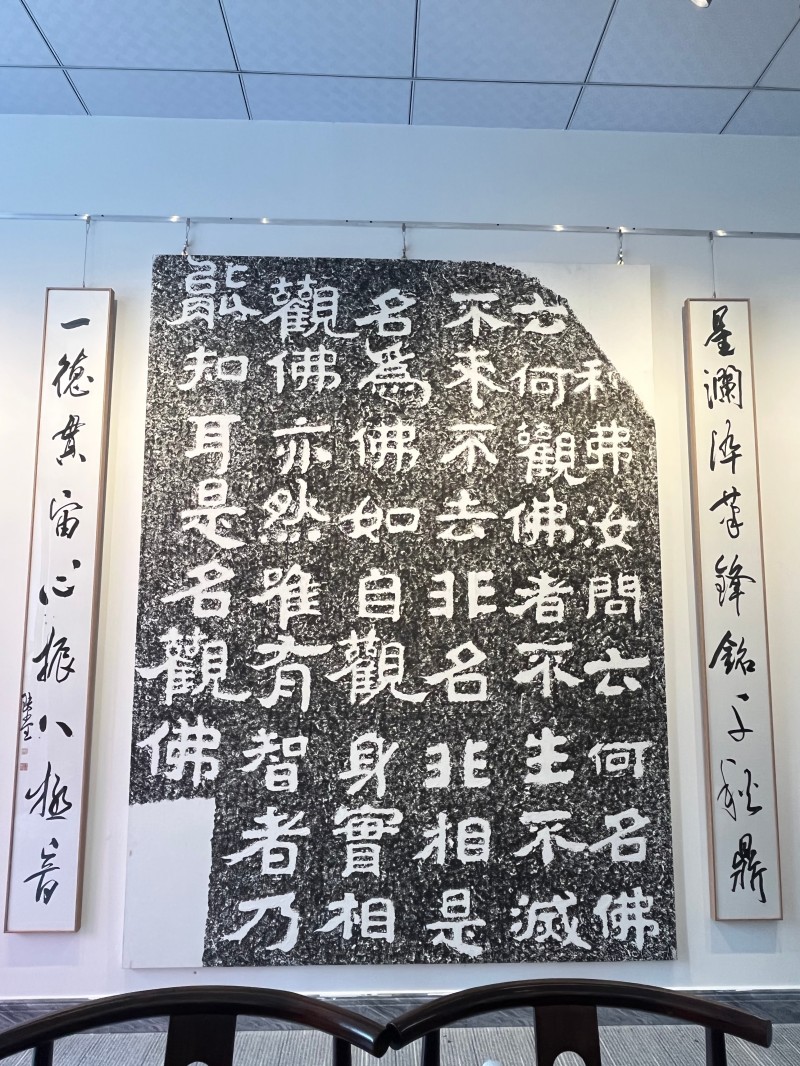 星瀾淬筆鋒銘千秋鼎
利弗汝問云何名佛
云何觀佛者不生不滅
不来不去非名非相是
名為佛如自觀身實相
觀佛亦然唯有智者乃
能知耳是名觀佛
一德貫宙心振八極音